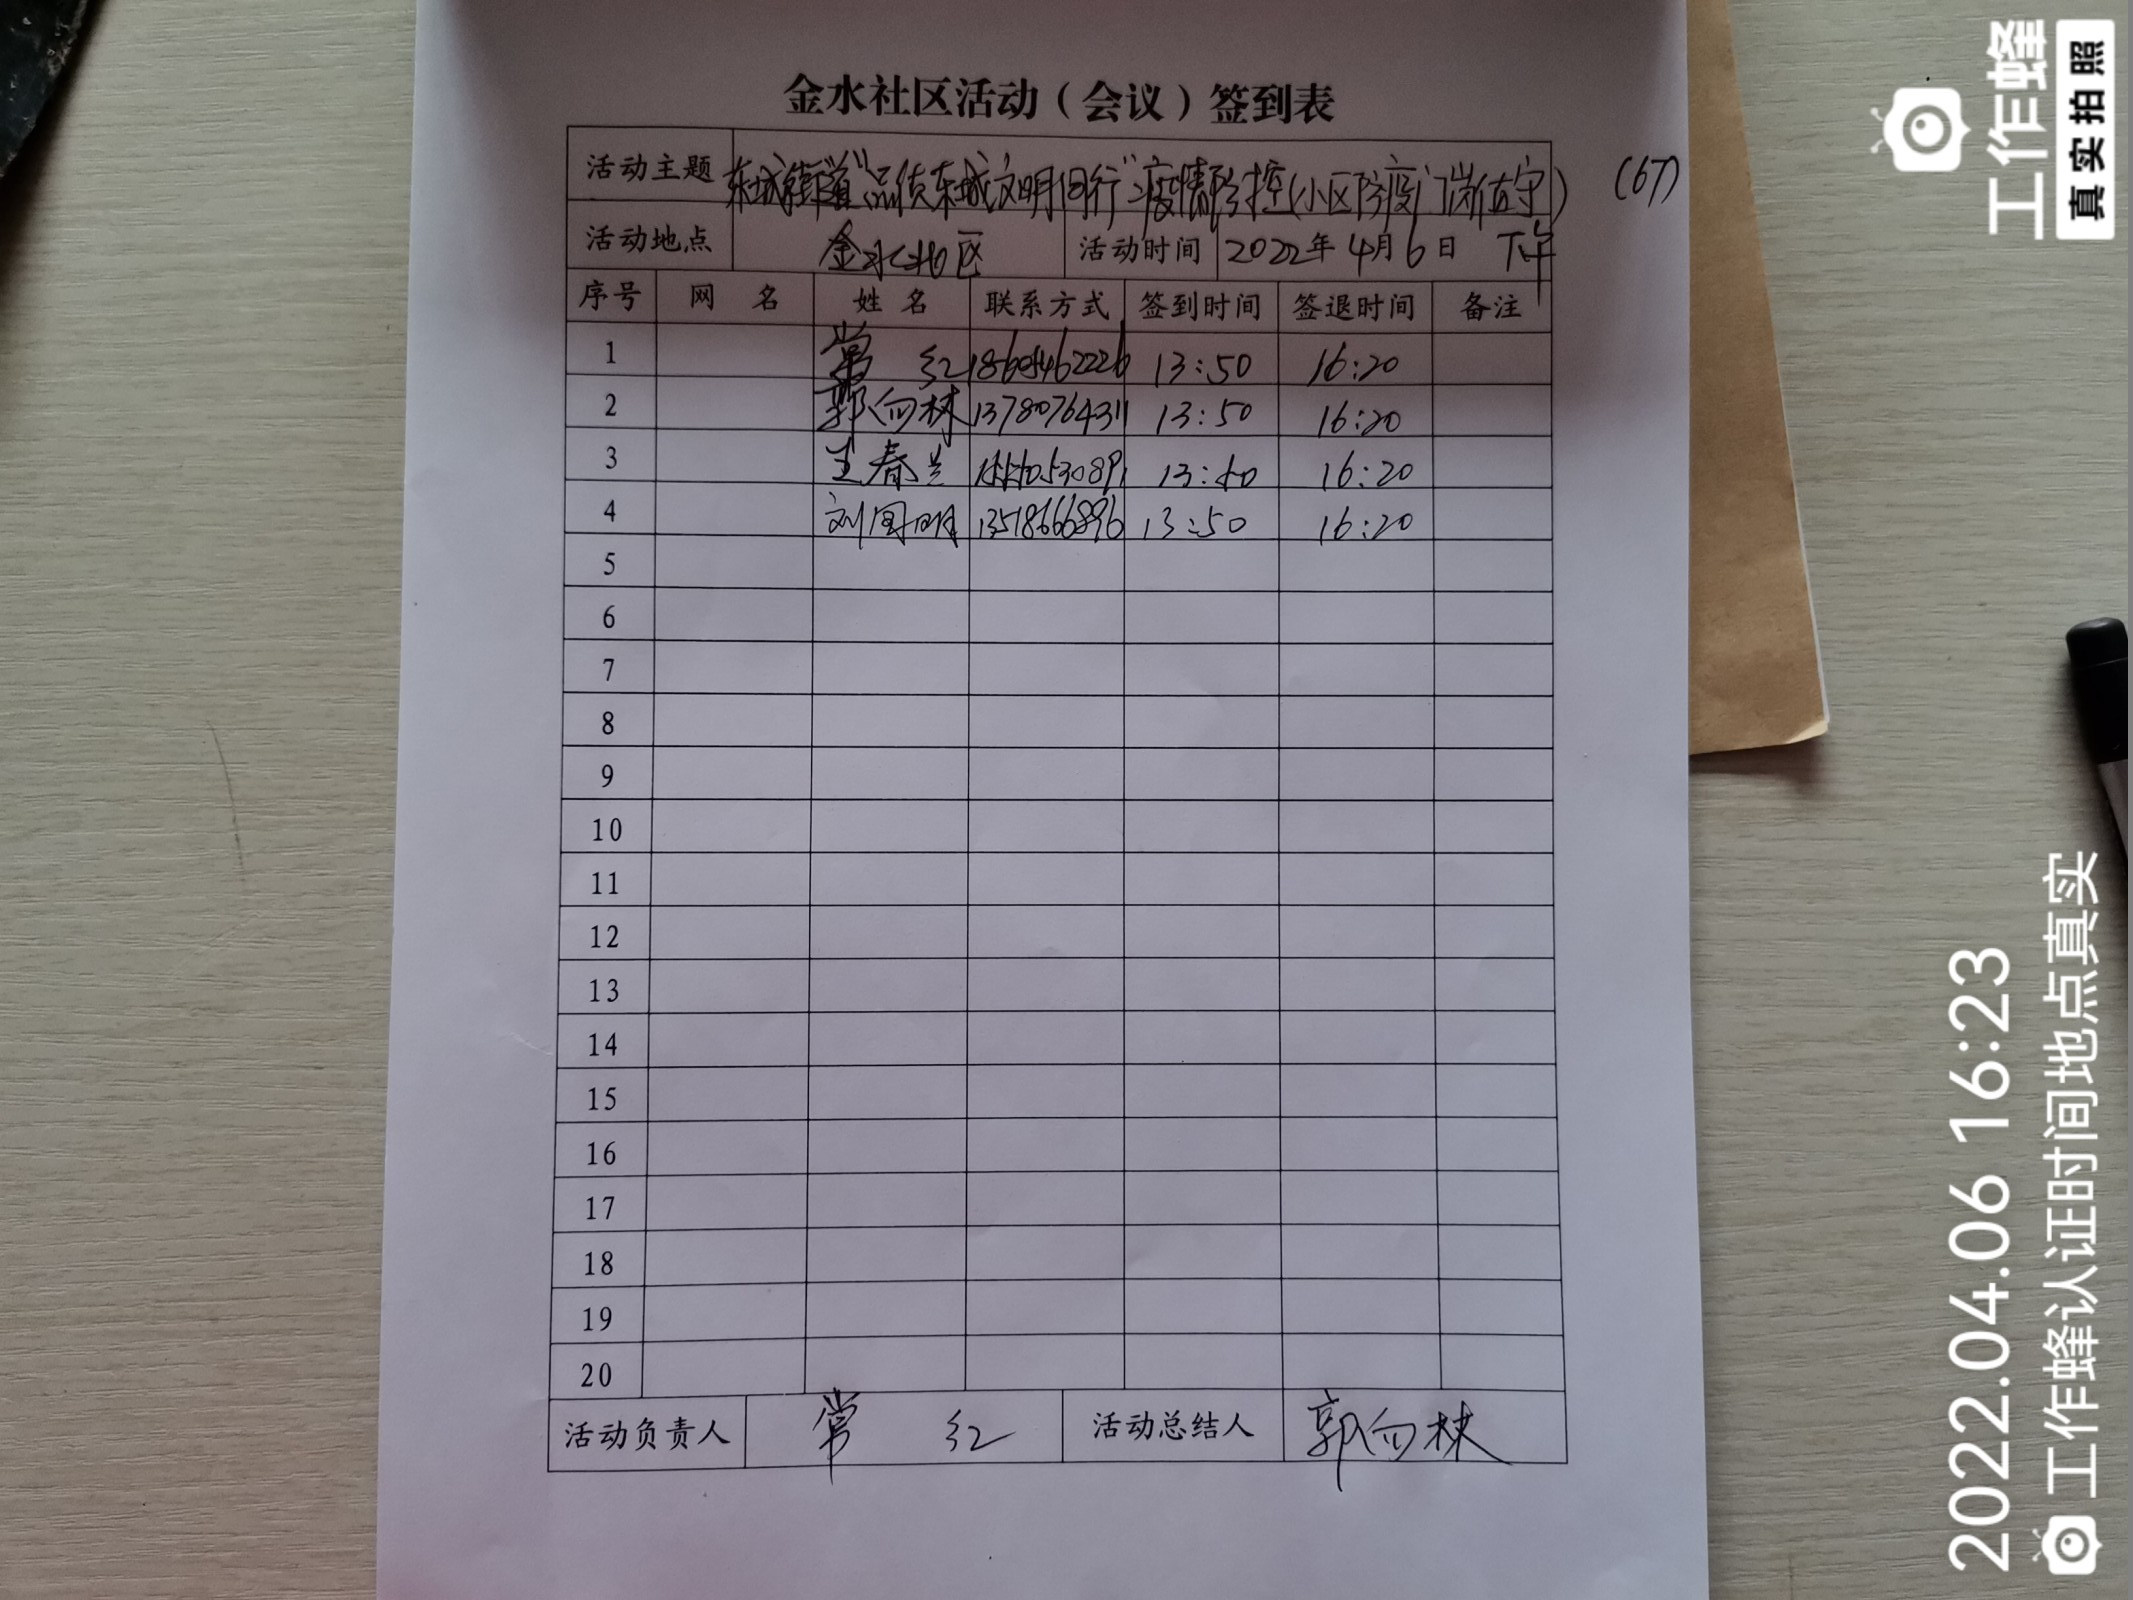 金水社区活动（会议）签到表
活动主题 东城街道"品质东城文明同行"疫情防控(小区防疫门岗值守) (67)
活动地点 金水北区 活动时间 2022年4月6日 下午
序号 网 名 姓 名 联系方式 签到时间 签退时间 备注
1 常 红 13:50 16:20
2 郭向林 13780764311 13:50 16:20
3 王春兰 13:50 16:20
4 刘国明 13518666896 13:50 16:20
5
6
7
8
9
10
11
12
13
14
15
16
17
18
19
20
活动负责人 常 红 活动总结人 郭向林
工作蜂
真实拍照
2022.04.06 16:23
工作蜂认证时间地点真实